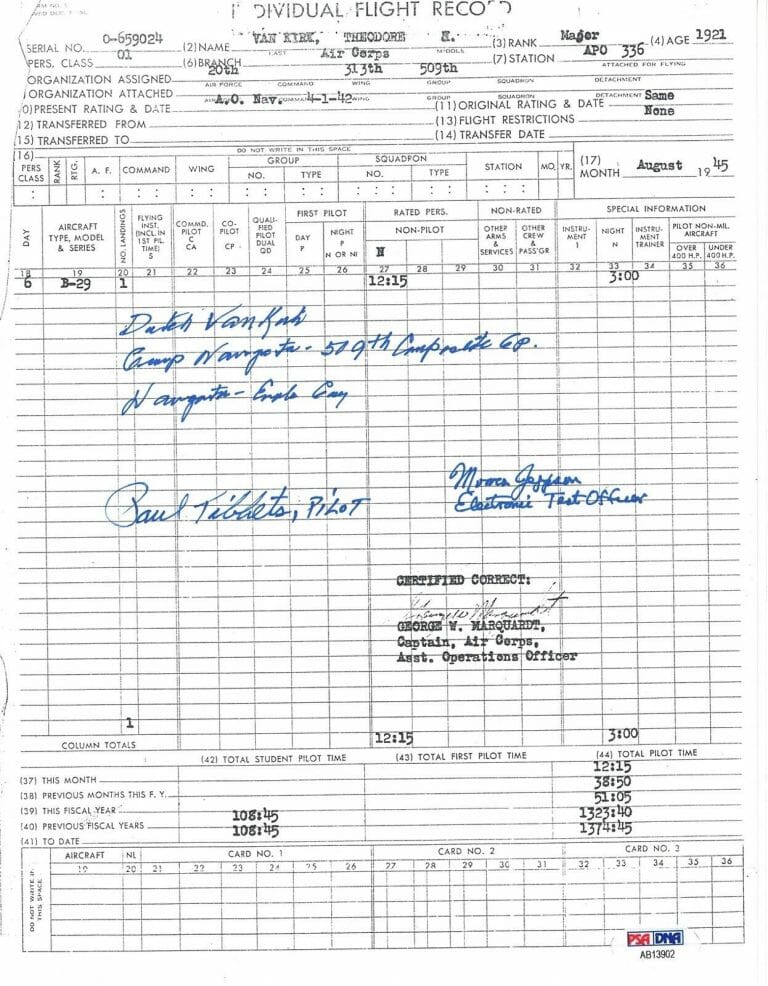 DIVIDUAL FLIGHT RECO
SERIAL NO. 0-659024 (2) NAME VAN KIRK, THEODORE (3) RANK Major (4) AGE 1921
LAST MIDDLE
PERS. CLASS 01 (6) BRANCH Air Corps (7) STATION APO 336
ORGANIZATION ASSIGNED 20th 313th 509th ATTACHED FOR FLYING
AIR FORCE COMMAND WING GROUP SQUADRON DETACHMENT
ORGANIZATION ATTACHED
AIR COMMAND WING GROUP SQUADRON DETACHMENT
0) PRESENT RATING & DATE A.O. Nav. 4-1-42 (11) ORIGINAL RATING & DATE Same
12) TRANSFERRED FROM (13) FLIGHT RESTRICTIONS None
(15) TRANSFERRED TO (14) TRANSFER DATE
(16) DO NOT WRITE IN THIS SPACE
PERS CLASS RANK RTG. A. F. COMMAND WING GROUP NO. TYPE SQUADRON NO. TYPE STATION MO. YR. (17) MONTH August 1945
DAY AIRCRAFT TYPE, MODEL & SERIES NO. LANDINGS FLYING INST. (INCL. IN 1ST PIL. TIME) S COMMD. PILOT C CA CO-PILOT CP QUALIFIED PILOT DUAL QD FIRST PILOT DAY P NIGHT P N OR NI RATED PERS. NON-PILOT N NON-RATED OTHER ARMS & SERVICES OTHER CREW & PASS'GR SPECIAL INFORMATION INSTRUMENT I NIGHT N INSTRUMENT TRAINER PILOT NON-MIL. AIRCRAFT OVER 400 H.P. UNDER 400 H.P.
18 19 20 21 22 23 24 25 26 27 28 29 30 31 32 33 34 35 36
6 B-29 1 12:15 3:00
Dutch Van Kirk
509th Composite Gp.
Enola Gay
Paul Tibbets, PILOT
Morris Jeppson
Electronic Test Officer
CERTIFIED CORRECT:
GEORGE W. MARQUARDT,
Captain, Air Corps,
Asst. Operations Officer
1
COLUMN TOTALS 12:15 3:00
(42) TOTAL STUDENT PILOT TIME (43) TOTAL FIRST PILOT TIME (44) TOTAL PILOT TIME
(37) THIS MONTH 12:15
(38) PREVIOUS MONTHS THIS F. Y. 38:50
(39) THIS FISCAL YEAR 51:05
(40) PREVIOUS FISCAL YEARS 108:45 1323:40
(41) TO DATE 108:45 1374:45
DO NOT WRITE IN THIS SPACE AIRCRAFT NL CARD NO. 1 CARD NO. 2 CARD NO. 3
19 20 21 22 23 24 25 26 27 28 29 30 31 32 33 34 35 36
PSA DNA
AB13902